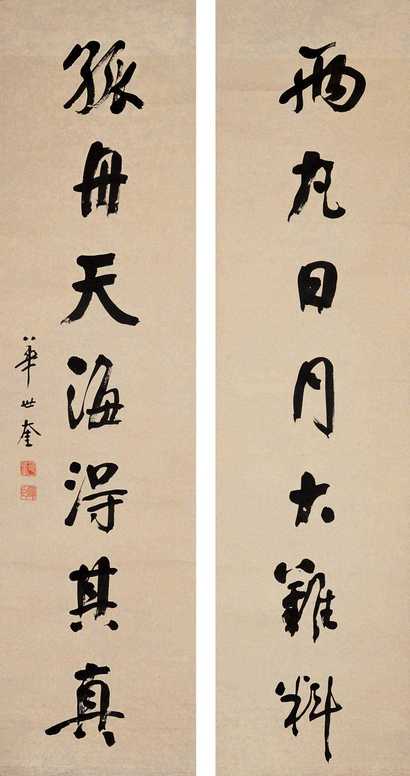 兩日月難料
孤舟天海得其真
華世奎